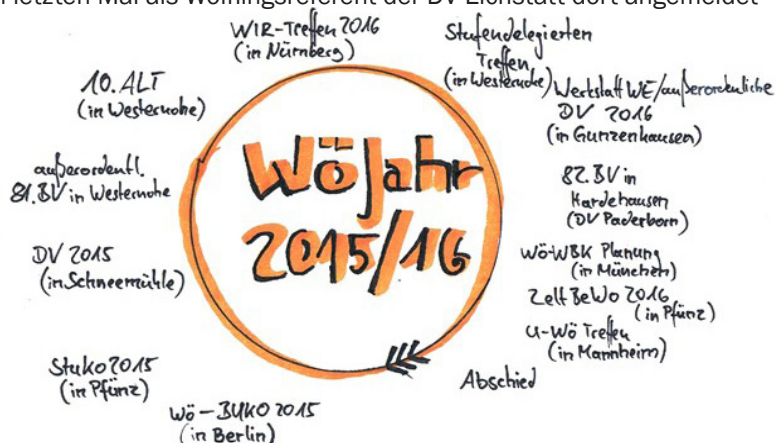 letzten Mal als Wölflingsreferent der DV Eichstätt dort angemeldet
WIR-Treffen 2016
(in Nürnberg)
Stufendelegierten
Treffen
(in Westernohe)
Werkstatt WE/außerordentliche
DV 2016
(in Gunzenhausen)
82. BV in
Hardehausen
(DV Paderborn)
Wö-WBK Planung
(in München)
Zelt BeWo 2016
(in Pfünz)
U-Wö Treffen
(in Mannheim)
Abschied
Wö-BUKO 2015
(in Berlin)
Stuko 2015
(in Pfünz)
DV 2015
(in Schneemühle)
außerordentl.
81. BV in Westernohe
10. ALT
(in Westernohe)
WöJahr
2015/16